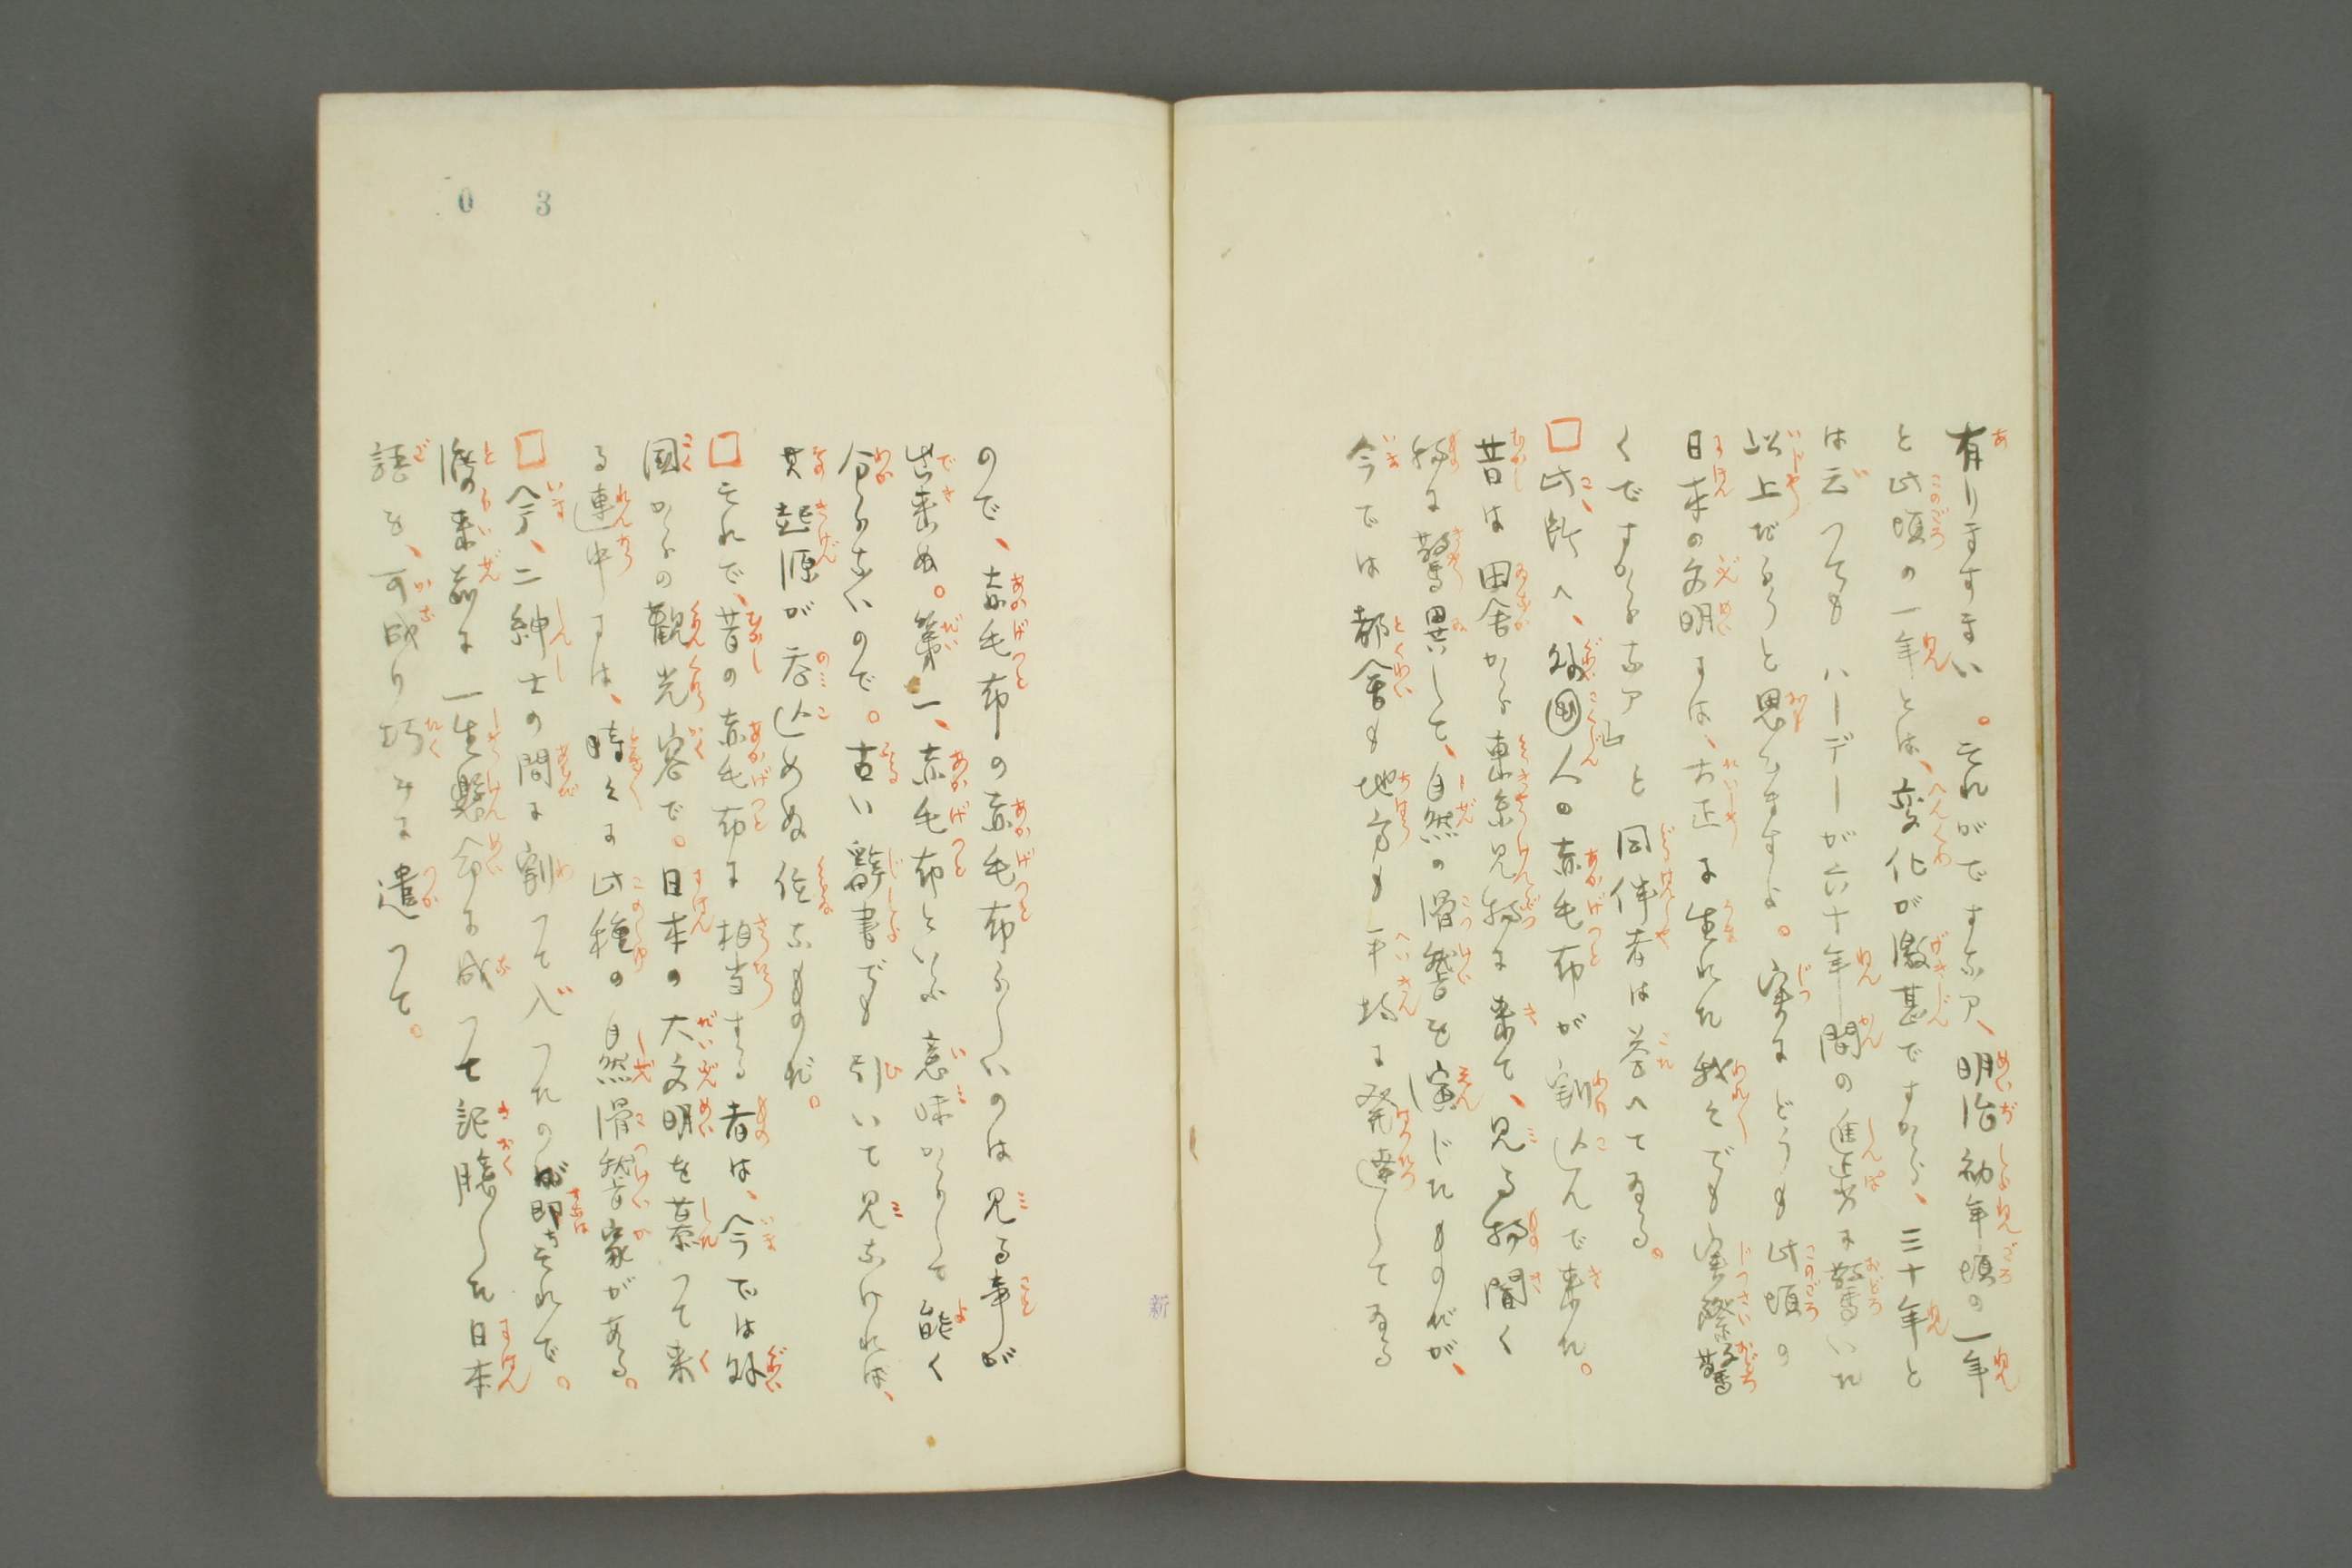 有りますまい。それがですなア、明治初年頃の一年
と此頃の一年とは、変化が激甚ですから、三十年と
は云つても ハーデーが六十年間の進歩に驚いた
以上だらうと思ひますよ。実にどうも此頃の
日本の文明には、大正に生れた我々でも実際驚
くですからなア』と同伴者は答へてゐる。
□此所へ、外國人の赤毛布が割込んで来た。
昔は田舎から東京見物に来て、見る物聞く
物に驚異して、自然の滑稽を演じたものだが、
今では都會も地方も平均に発達してゐる
ので、赤毛布の赤毛布らしいのは見る事が
出来ぬ。第一、赤毛布といふ意味からして能く
分らないので。古い辭書でも引いて見なければ、
其起源が呑込めぬ位なものだ。
□それで、昔の赤毛布に相当する者は、今では外
国からの観光客で。日本の大文明を慕つて来
る連中には、時々に此種の自然滑稽家がある。
□今、二紳士の間に割つて入つたのが即ちそれで。
渡来前に一生懸命に成つて記臆した日本
語を、可成り巧みに遣つて。
0 3
新